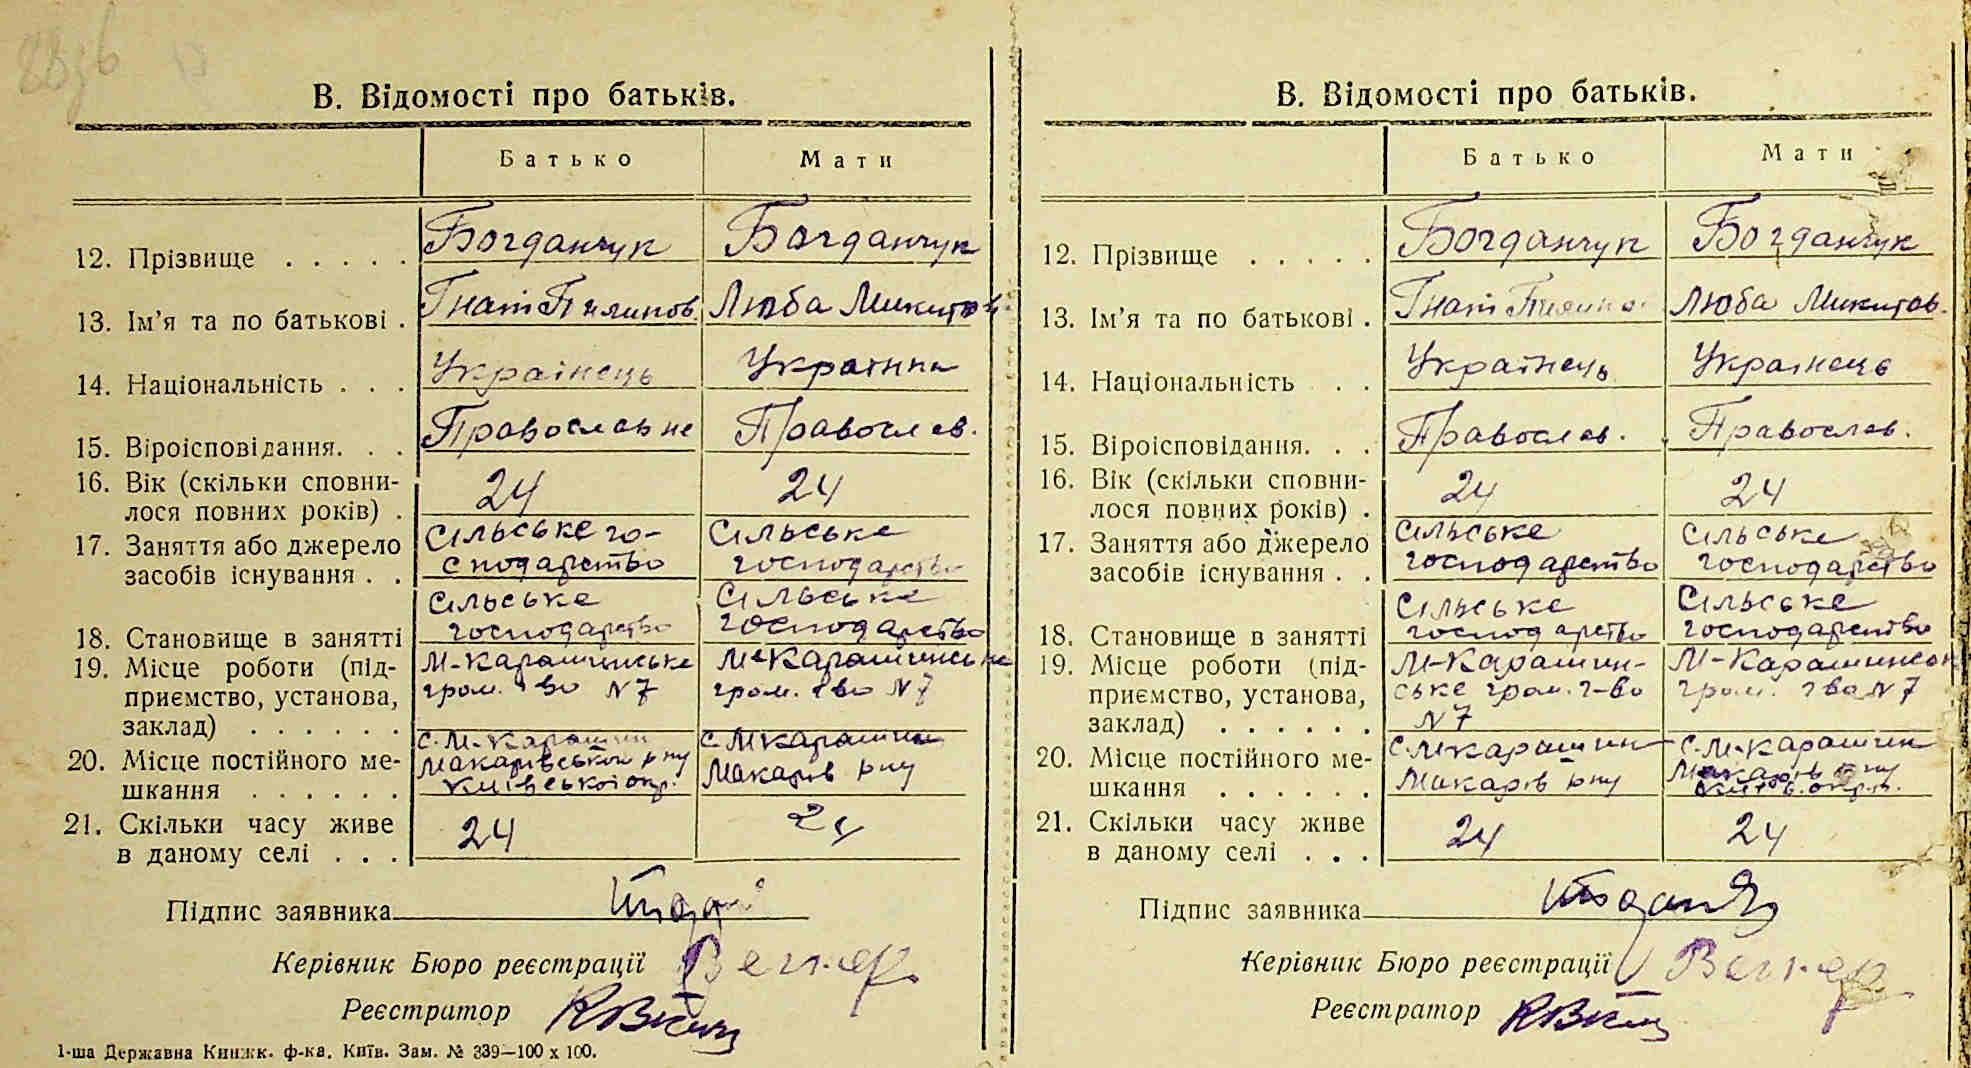 В. Відомості про батьків.
Батько Мати
12. Прізвище . . . . . Богданчук Богданчук
13. Ім'я та по батькові . Гнат Пилипов. Люба Микитов.
14. Національність . . . Українець Українка
15. Віроісповідання. . . Православне Православ.
16. Вік (скільки сповни-
лося повних років) . 24 24
17. Заняття або джерело Сільське го- Сільське
засобів існування . . сподарство господарство
Сільське Сільське
18. Становище в занятті господарство господарство
19. Місце роботи (під- М-Карашинське М-Карашинське
приємство, установа, гром. т-во N7 гром. т-во N7
заклад) . . . . . .
с. М-Карашин с. М Карашин
20. Місце постійного ме- Макарівської р-ну Макарів р-ну
шкання . . . . . . Київської окр.
21. Скільки часу живе
в даному селі . . . 24 24
Підпис заявника
Керівник Бюро реєстрації
Реєстратор
1-ша Державна Книжк. ф-ка. Київ. Зам. № 339—100 x 100.
В. Відомості про батьків.
Батько Мати
12. Прізвище . . . . . Богданчук Богданчук
13. Ім'я та по батькові . Гнат Пилипо. Люба Микитов.
14. Національність . . Українець Українець
15. Віроісповідання. . . Православ. Православ.
16. Вік (скільки сповни-
лося повних років) . 24 24
17. Заняття або джерело Сільське Сільське
засобів існування . . господарство господарство
Сільське Сільське
18. Становище в занятті господарство господарство
19. Місце роботи (під- М-Карашин- М-Карашинськ
приємство, установа, ське гром. т-во гром. т-во N7
заклад) . . . . . . N7
20. Місце постійного ме- с. М Карашин с. М-Карашин
шкання . . . . . . Макарів р-ну Макарів р-ну
Київ. окр.
21. Скільки часу живе
в даному селі . . . 24 24
Підпис заявника
Керівник Бюро реєстрації
Реєстратор